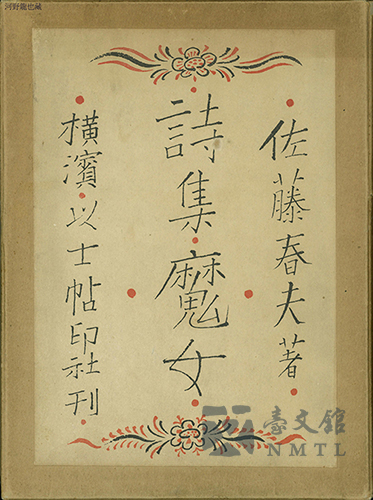 河野龍也藏
佐藤春夫著
詩集魔女
橫濱・以士帖印社刊
臺文館
NMTL